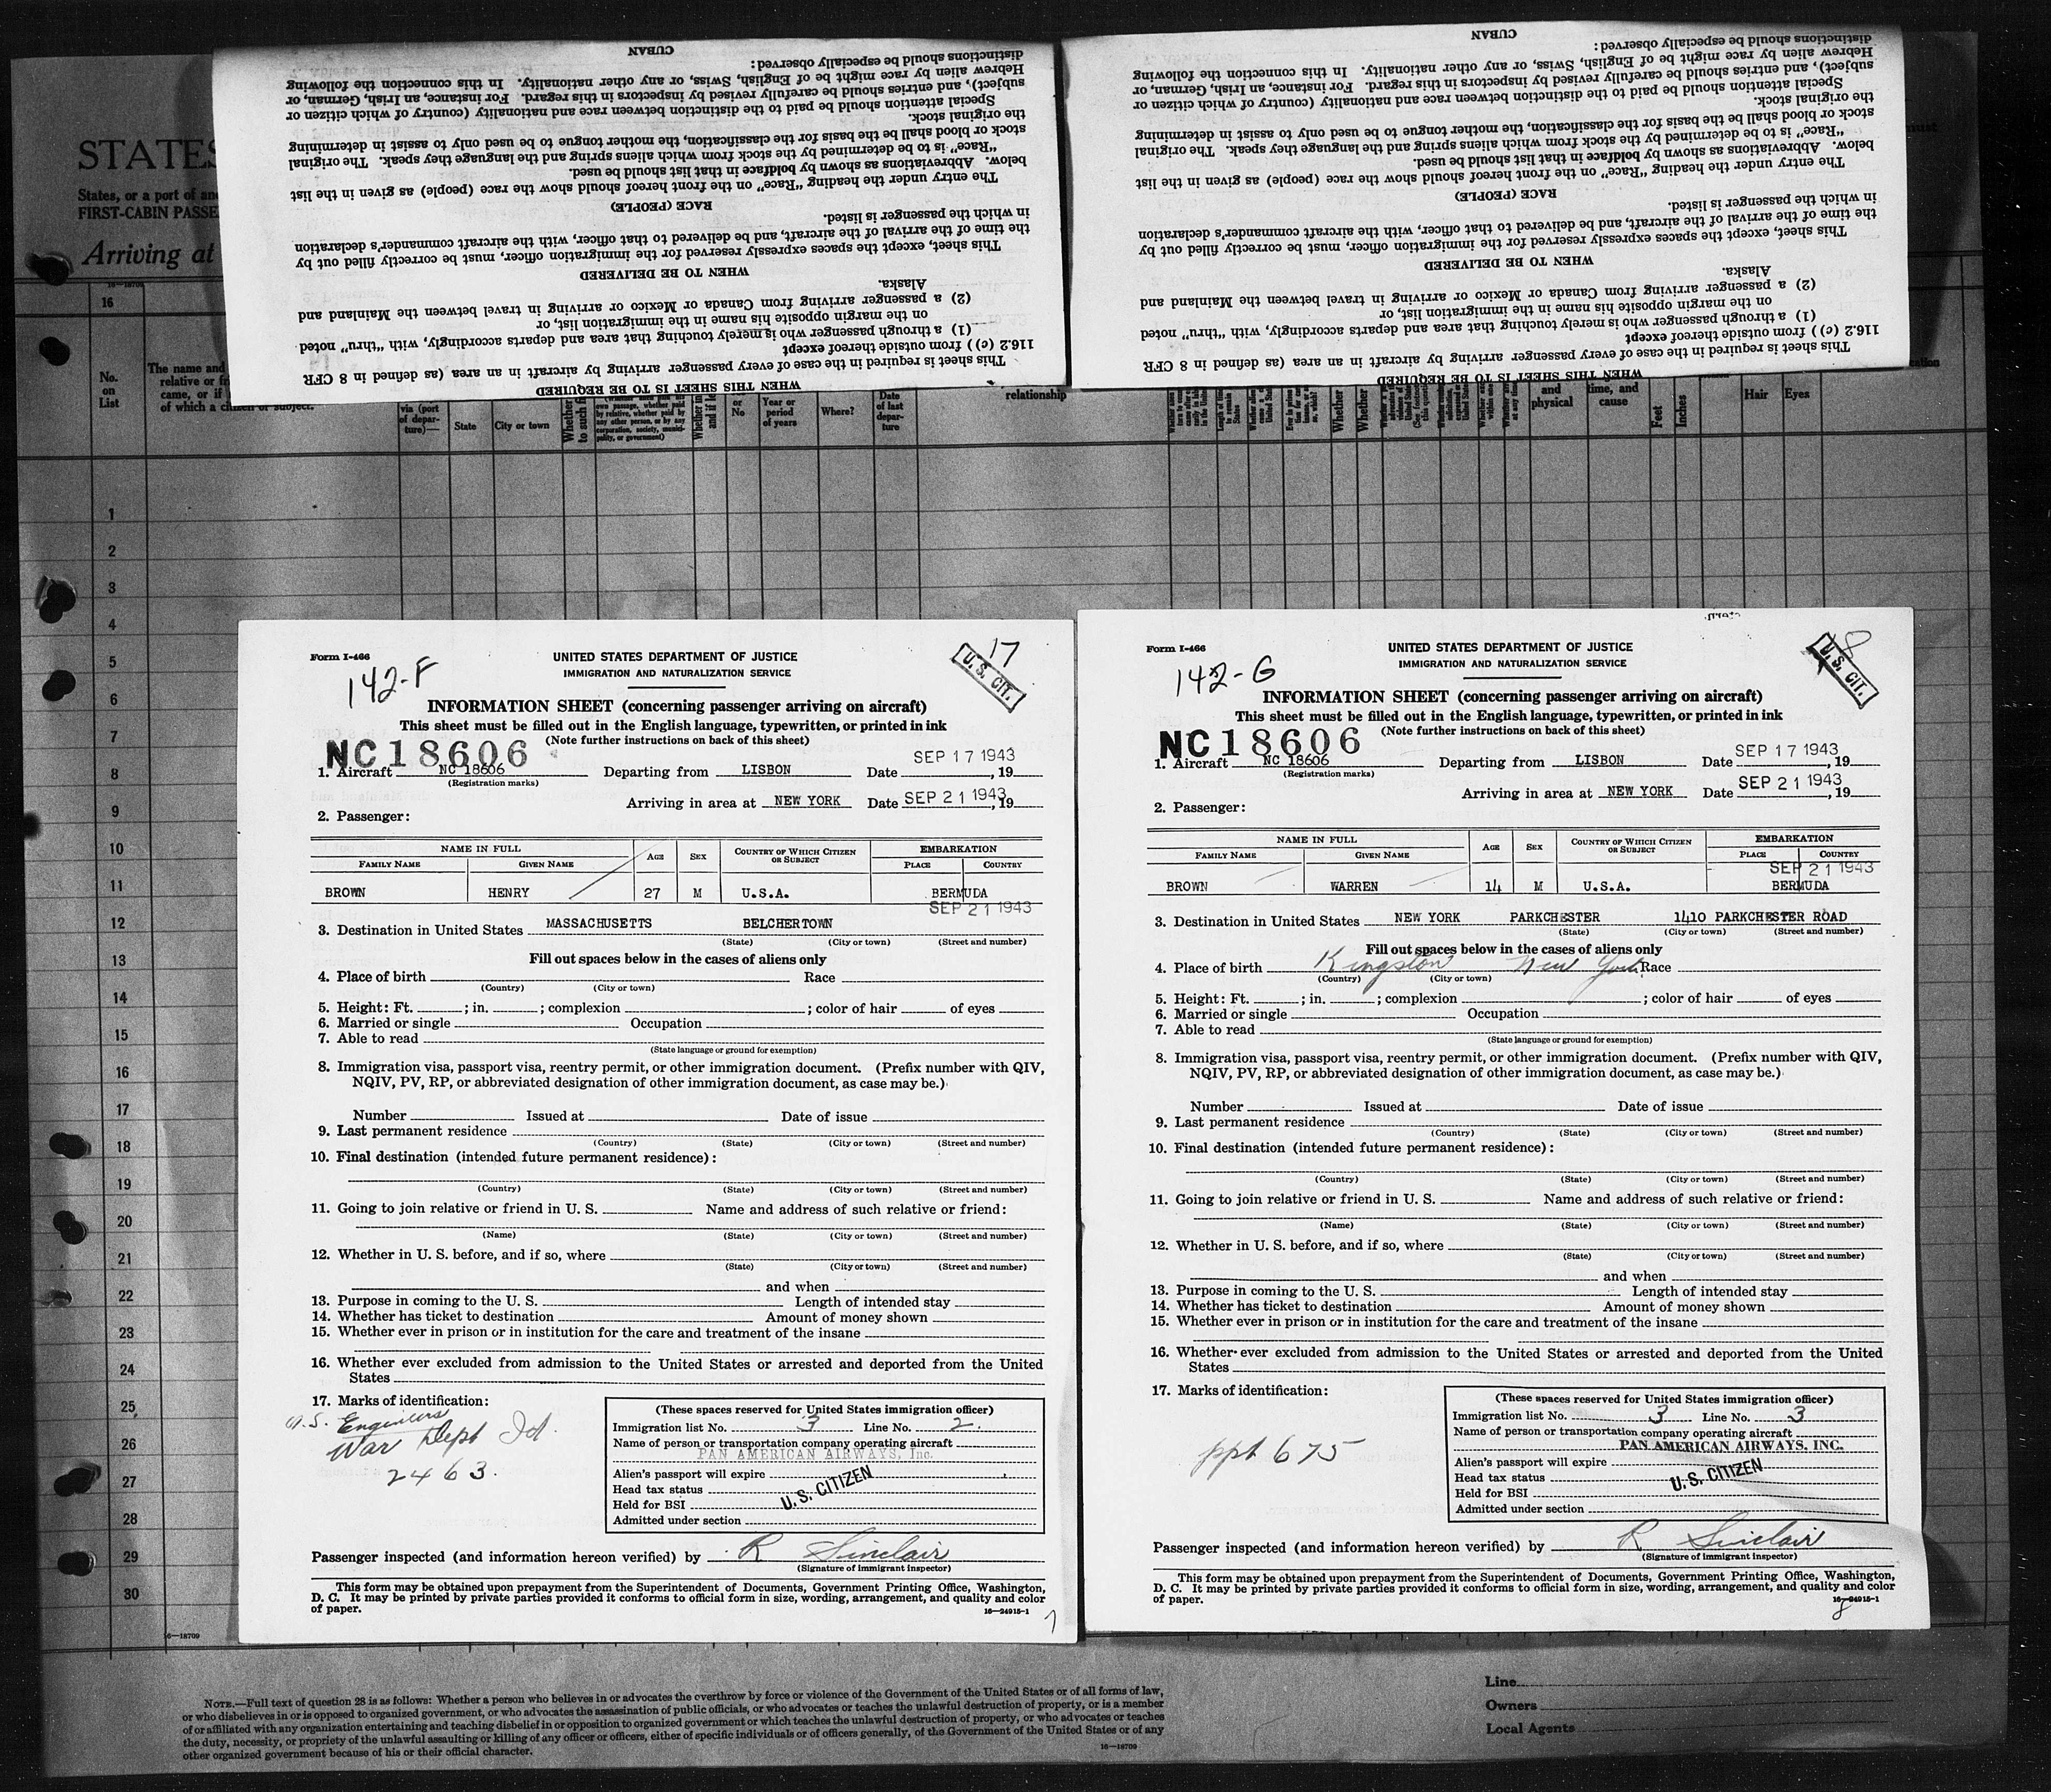 CUBAN
distinctions should be especially observed:
Hebrew alien by race might be of English, Swiss, or any other nationality. In this connection the following
subject), and entries should be carefully revised by inspectors in this regard. For instance, an Irish, German, or
Special attention should be paid to the distinction between race and nationality (country of which citizen or
the original stock.
stock or blood shall be the basis for the classification, the mother tongue to be used only to assist in determining
"Race" is to be determined by the stock from which aliens spring and the language they speak. The original
below. Abbreviations as shown by boldface in that list should be used.
The entry under the heading "Race" on the front hereof should show the race (people) as given in the list
RACE (PEOPLE)
in which the passenger is listed.
the time of the arrival of the aircraft, and be delivered to that officer, with the aircraft commander's declaration
This sheet, except the spaces expressly reserved for the immigration officer, must be correctly filled out by
WHEN TO BE DELIVERED
Alaska.
(2) a passenger arriving from Canada or Mexico or arriving in travel between the Mainland and
on the margin opposite his name in the immigration list, or
(1) a through passenger who is merely touching that area and departs accordingly, with "thru" noted
116.2 (c)) from outside thereof except
This sheet is required in the case of every passenger arriving by aircraft in an area (as defined in 8 CFR
WHEN THIS SHEET IS TO BE REQUIRED
CUBAN
distinctions should be especially observed:
Hebrew alien by race might be of English, Swiss, or any other nationality. In this connection the following
subject), and entries should be carefully revised by inspectors in this regard. For instance, an Irish, German, or
Special attention should be paid to the distinction between race and nationality (country of which citizen or
the original stock.
stock or blood shall be the basis for the classification, the mother tongue to be used only to assist in determining
"Race" is to be determined by the stock from which aliens spring and the language they speak. The original
below. Abbreviations as shown by boldface in that list should be used.
The entry under the heading "Race" on the front hereof should show the race (people) as given in the list
RACE (PEOPLE)
in which the passenger is listed.
the time of the arrival of the aircraft, and be delivered to that officer, with the aircraft commander's declaration
This sheet, except the spaces expressly reserved for the immigration officer, must be correctly filled out by
WHEN TO BE DELIVERED
Alaska.
(2) a passenger arriving from Canada or Mexico or arriving in travel between the Mainland and
on the margin opposite his name in the immigration list, or
(1) a through passenger who is merely touching that area and departs accordingly, with "thru" noted
116.2 (c)) from outside thereof except
This sheet is required in the case of every passenger arriving by aircraft in an area (as defined in 8 CFR
WHEN THIS SHEET IS TO BE REQUIRED
STATES
States, or a port of
FIRST-CABIN
Arriving at
16
No. on List
The name and
relative or
came, or if
of which a citizen or subject.
via (port of depar-ture)—
State
City or town
or No
Year or period of years
Where?
Date of last depar-ture
relationship
Whether
Whether
and physical
time, and cause
Feet
Inches
Hair
Eyes
1
2
3
4
5
6
7
8
9
10
11
12
13
14
15
16
17
18
19
20
21
22
23
24
25
26
27
28
29
30
16—18709
Form I-466
142-F
17
U. S. CIT.
UNITED STATES DEPARTMENT OF JUSTICE
IMMIGRATION AND NATURALIZATION SERVICE
INFORMATION SHEET (concerning passenger arriving on aircraft)
This sheet must be filled out in the English language, typewritten, or printed in ink
(Note further instructions on back of this sheet)
NC18606
1. Aircraft NC 18606 Departing from LISBON Date SEP 17 1943, 19
(Registration marks)
Arriving in area at NEW YORK Date SEP 21 1943, 19
2. Passenger:
NAME IN FULL AGE SEX COUNTRY OF WHICH CITIZEN OR SUBJECT EMBARKATION
FAMILY NAME GIVEN NAME PLACE COUNTRY
BROWN HENRY 27 M U.S.A. BERMUDA
SEP 21 1943
3. Destination in United States MASSACHUSETTS BELCHERTOWN
(State) (City or town) (Street and number)
Fill out spaces below in the cases of aliens only
4. Place of birth Race
(Country) (City or town)
5. Height: Ft. ; in. ; complexion ; color of hair of eyes
6. Married or single Occupation
7. Able to read
(State language or ground for exemption)
8. Immigration visa, passport visa, reentry permit, or other immigration document. (Prefix number with QIV,
NQIV, PV, RP, or abbreviated designation of other immigration document, as case may be.)
Number Issued at Date of issue
9. Last permanent residence
(Country) (State) (City or town) (Street and number)
10. Final destination (intended future permanent residence):
(Country) (State) (City or town) (Street and number)
11. Going to join relative or friend in U. S. Name and address of such relative or friend:
(Name) (State) (City or town) (Street and number)
12. Whether in U. S. before, and if so, where
(State) (City or town) (Street and number)
and when
13. Purpose in coming to the U. S. Length of intended stay
14. Whether has ticket to destination Amount of money shown
15. Whether ever in prison or in institution for the care and treatment of the insane
16. Whether ever excluded from admission to the United States or arrested and deported from the United
States
17. Marks of identification:
U.S. Engineers
War Dept Id.
2463.
(These spaces reserved for United States immigration officer)
Immigration list No. 3 Line No. 2.
Name of person or transportation company operating aircraft
PAN AMERICAN AIRWAYS, Inc.
Alien's passport will expire
Head tax status
Held for BSI
U. S. CITIZEN
Admitted under section
Passenger inspected (and information hereon verified) by R Sinclair
(Signature of immigrant inspector)
This form may be obtained upon prepayment from the Superintendent of Documents, Government Printing Office, Washington,
D. C. It may be printed by private parties provided it conforms to official form in size, wording, arrangement, and quality and color
of paper.
16—24915-1
7
Form I-466
142-G
18
U. S. CIT.
UNITED STATES DEPARTMENT OF JUSTICE
IMMIGRATION AND NATURALIZATION SERVICE
INFORMATION SHEET (concerning passenger arriving on aircraft)
This sheet must be filled out in the English language, typewritten, or printed in ink
(Note further instructions on back of this sheet)
NC18606
1. Aircraft NC 18606 Departing from LISBON Date SEP 17 1943, 19
(Registration marks)
Arriving in area at NEW YORK Date SEP 21 1943, 19
2. Passenger:
NAME IN FULL AGE SEX COUNTRY OF WHICH CITIZEN OR SUBJECT EMBARKATION
FAMILY NAME GIVEN NAME PLACE COUNTRY
SEP 21 1943
BROWN WARREN 14 M U.S.A. BERMUDA
3. Destination in United States NEW YORK PARKCHESTER 1410 PARKCHESTER ROAD
(State) (City or town) (Street and number)
Fill out spaces below in the cases of aliens only
4. Place of birth Kingston New York Race
(Country) (City or town)
5. Height: Ft. ; in. ; complexion ; color of hair of eyes
6. Married or single Occupation
7. Able to read
(State language or ground for exemption)
8. Immigration visa, passport visa, reentry permit, or other immigration document. (Prefix number with QIV,
NQIV, PV, RP, or abbreviated designation of other immigration document, as case may be.)
Number Issued at Date of issue
9. Last permanent residence
(Country) (State) (City or town) (Street and number)
10. Final destination (intended future permanent residence):
(Country) (State) (City or town) (Street and number)
11. Going to join relative or friend in U. S. Name and address of such relative or friend:
(Name) (State) (City or town) (Street and number)
12. Whether in U. S. before, and if so, where
(State) (City or town) (Street and number)
and when
13. Purpose in coming to the U. S. Length of intended stay
14. Whether has ticket to destination Amount of money shown
15. Whether ever in prison or in institution for the care and treatment of the insane
16. Whether ever excluded from admission to the United States or arrested and deported from the United
States
17. Marks of identification:
ppt 675
(These spaces reserved for United States immigration officer)
Immigration list No. 3 Line No. 3
Name of person or transportation company operating aircraft
PAN AMERICAN AIRWAYS, INC.
Alien's passport will expire
Head tax status
U. S. CITIZEN
Held for BSI
Admitted under section
Passenger inspected (and information hereon verified) by R Sinclair
(Signature of immigrant inspector)
This form may be obtained upon prepayment from the Superintendent of Documents, Government Printing Office, Washington,
D. C. It may be printed by private parties provided it conforms to official form in size, wording, arrangement, and quality and color
of paper.
16—24915-1
8
NOTE.—Full text of question 28 is as follows: Whether a person who believes in or advocates the overthrow by force or violence of the Government of the United States or of all forms of law,
or who disbelieves in or is opposed to organized government, or who advocates the assassination of public officials, or who advocates or teaches the unlawful destruction of property, or is a member
of or affiliated with any organization entertaining and teaching disbelief in or opposition to organized government or which teaches the unlawful destruction of property, or who advocates or teaches
the duty, necessity, or propriety of the unlawful assaulting or killing of any officer or officers, either of specific individuals or of officers generally, of the Government of the United States or of any
other organized government because of his or their official character.
16—18709
Line
Owners
Local Agents